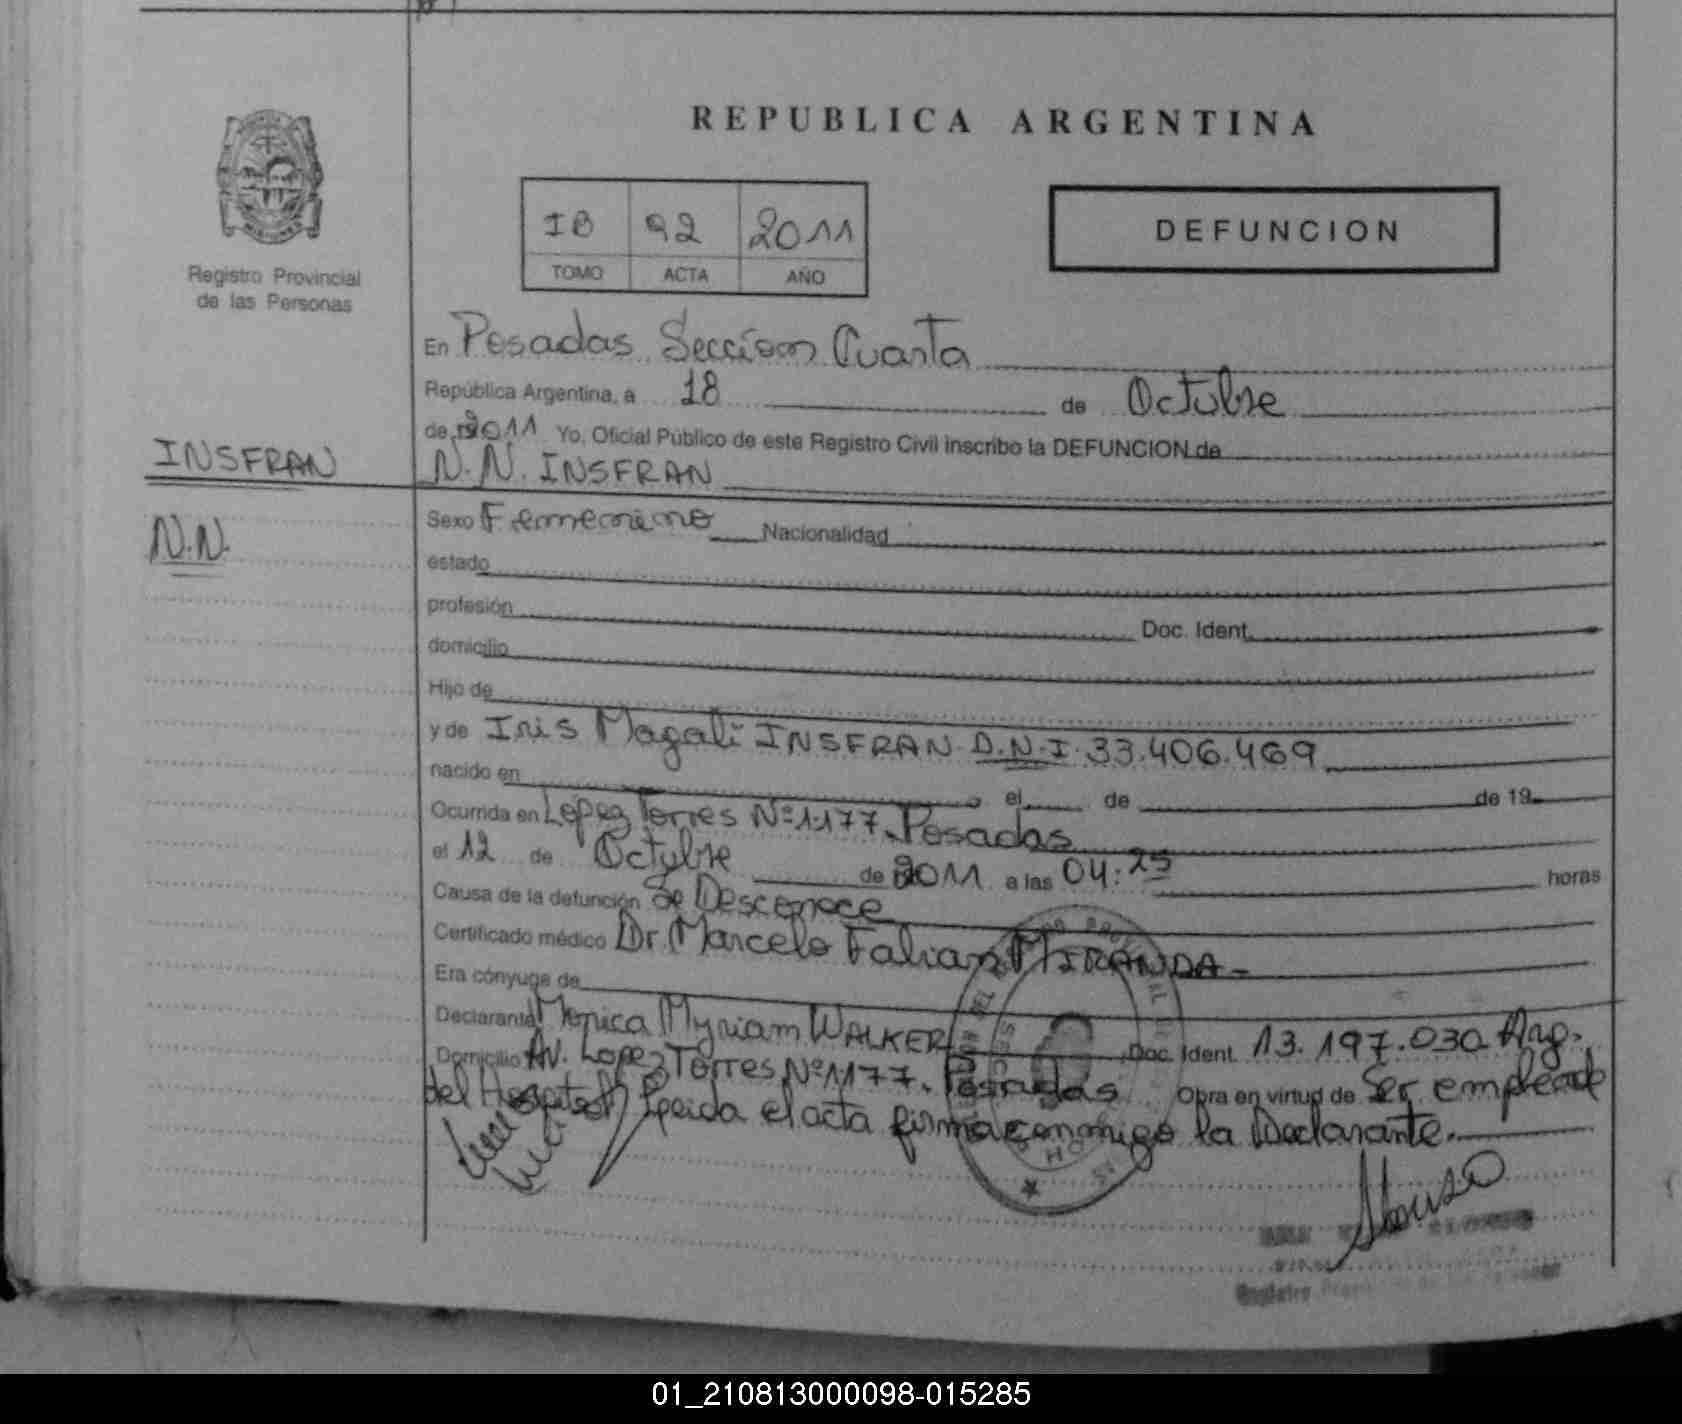 REPUBLICA ARGENTINA
IB 92 2011
TOMO ACTA AÑO
DEFUNCION
Registro Provincial
de las Personas
En Posadas Seccion Cuarta
República Argentina, a 18 de Octubre
de 2011 Yo, Oficial Público de este Registro Civil inscribo la DEFUNCION de
INSFRAN
N.N. INSFRAN
N.N.
Sexo Femenino Nacionalidad
estado
profesión Doc. Ident.
domicilio
Hijo de
y de Iris Magali INSFRAN D.N.I. 33.406.469
nacido en el de de 19
Ocurrida en Lopez Torres Nº 1177. Posadas
el 12 de Octubre de 2011 a las 04:25 horas
Causa de la defunción Se Desconoce
Certificado médico Dr. Marcelo Fabian MIRANDA
Era cónyuge de
Declarante Monica Myriam WALKER Doc. Ident. 13.197.030 Arg.
Domicilio Av. Lopez Torres Nº 1177. Posadas Obra en virtud de Ser empleada
del Hospital Leida el acta firma conmigo la Declarante.
Registro
01_210813000098-015285